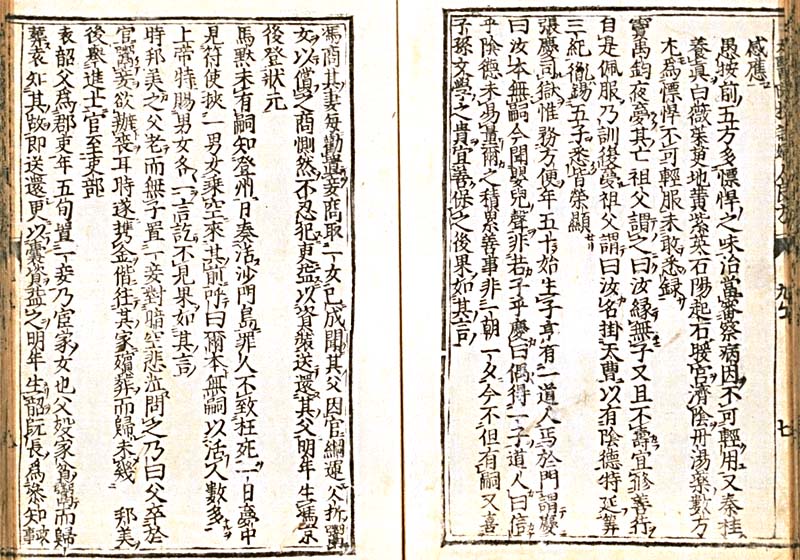 感應
愚按前五方多慓悍之味治當審察病因不可輕用又秦桂
養眞白薇茱萸地黄紫英石陽起石暖宮濟陰丹湯藥數方
尤爲慓悍不可輕服未敢悉録
竇禹鈞夜夢其亡祖父謂之曰汝縁無子又且不壽宜修善行
自是佩服乃訓後夢祖父謂曰汝名掛天曹以有陰德特延筭
三紀錫五子悉皆榮顯
張慶司獄惟務方便年五十始生子亨有一道人丐於門謂慶
曰汝本無嗣今聞嬰兒聲非若子乎慶曰偶得一子道人曰信
乎陰德未易量爾之積累善事非一朝一夕今不但有嗣又喜
子孫文學之貴宜善保之後果如其言
馮商其妻毎勸置妾商取一女已成聞其父因官綱運欠折鬻
女以償之商惻然不忍犯更益以資裝送還其父明年生馮京
後登狀元
馬默未有嗣知登州日奏活沙門島罪人不致枉死一日夢中
見符使挾一男女乗空來其前呼曰爾本無嗣以活人數多
上帝特賜男女各一言訖不見果如其言
時邦美之父老而無子置一妾對空悲泣問之乃曰父卒於
官鬻妾欲辦喪耳時遂携金偕往其家殯葬而歸未幾 邦美
後舉進士官至吏部
袁韶父爲郡吏年五旬置一妾乃宦家女也父歿家貧鬻而歸
葬袁知其故即送還更以囊資益之明年生韶既長爲參知